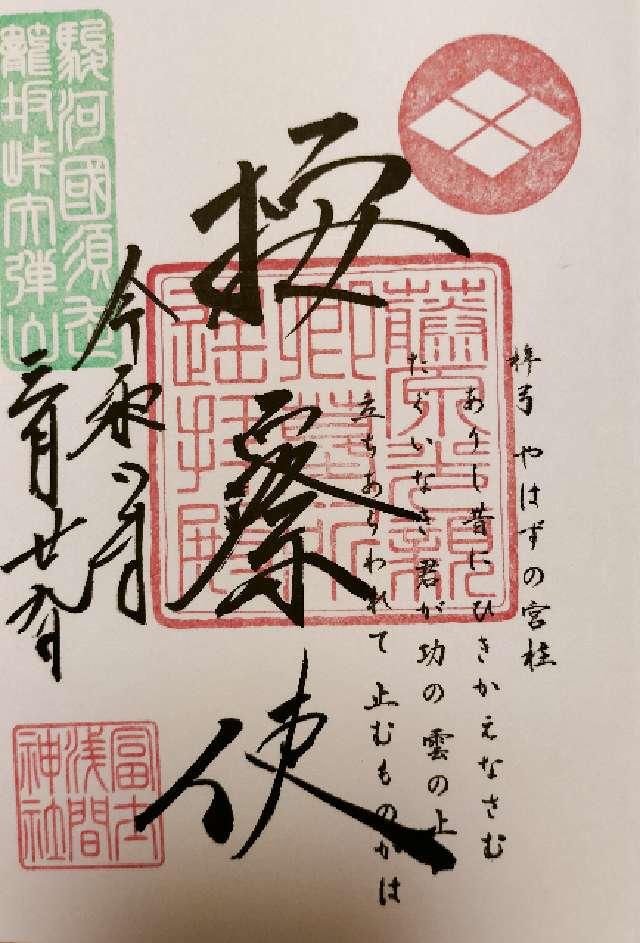 駿河國須走
籠坂峠
梓弓 やはずの宮柱
ありし昔に ひきかえなさむ
たぐいなき 君が功の 雲の上
立ちあらわれて 止むものかは
藤原光親
卿墓所
遥拝殿
按察使
令和四年
三月廿九日
冨士
浅間
神社